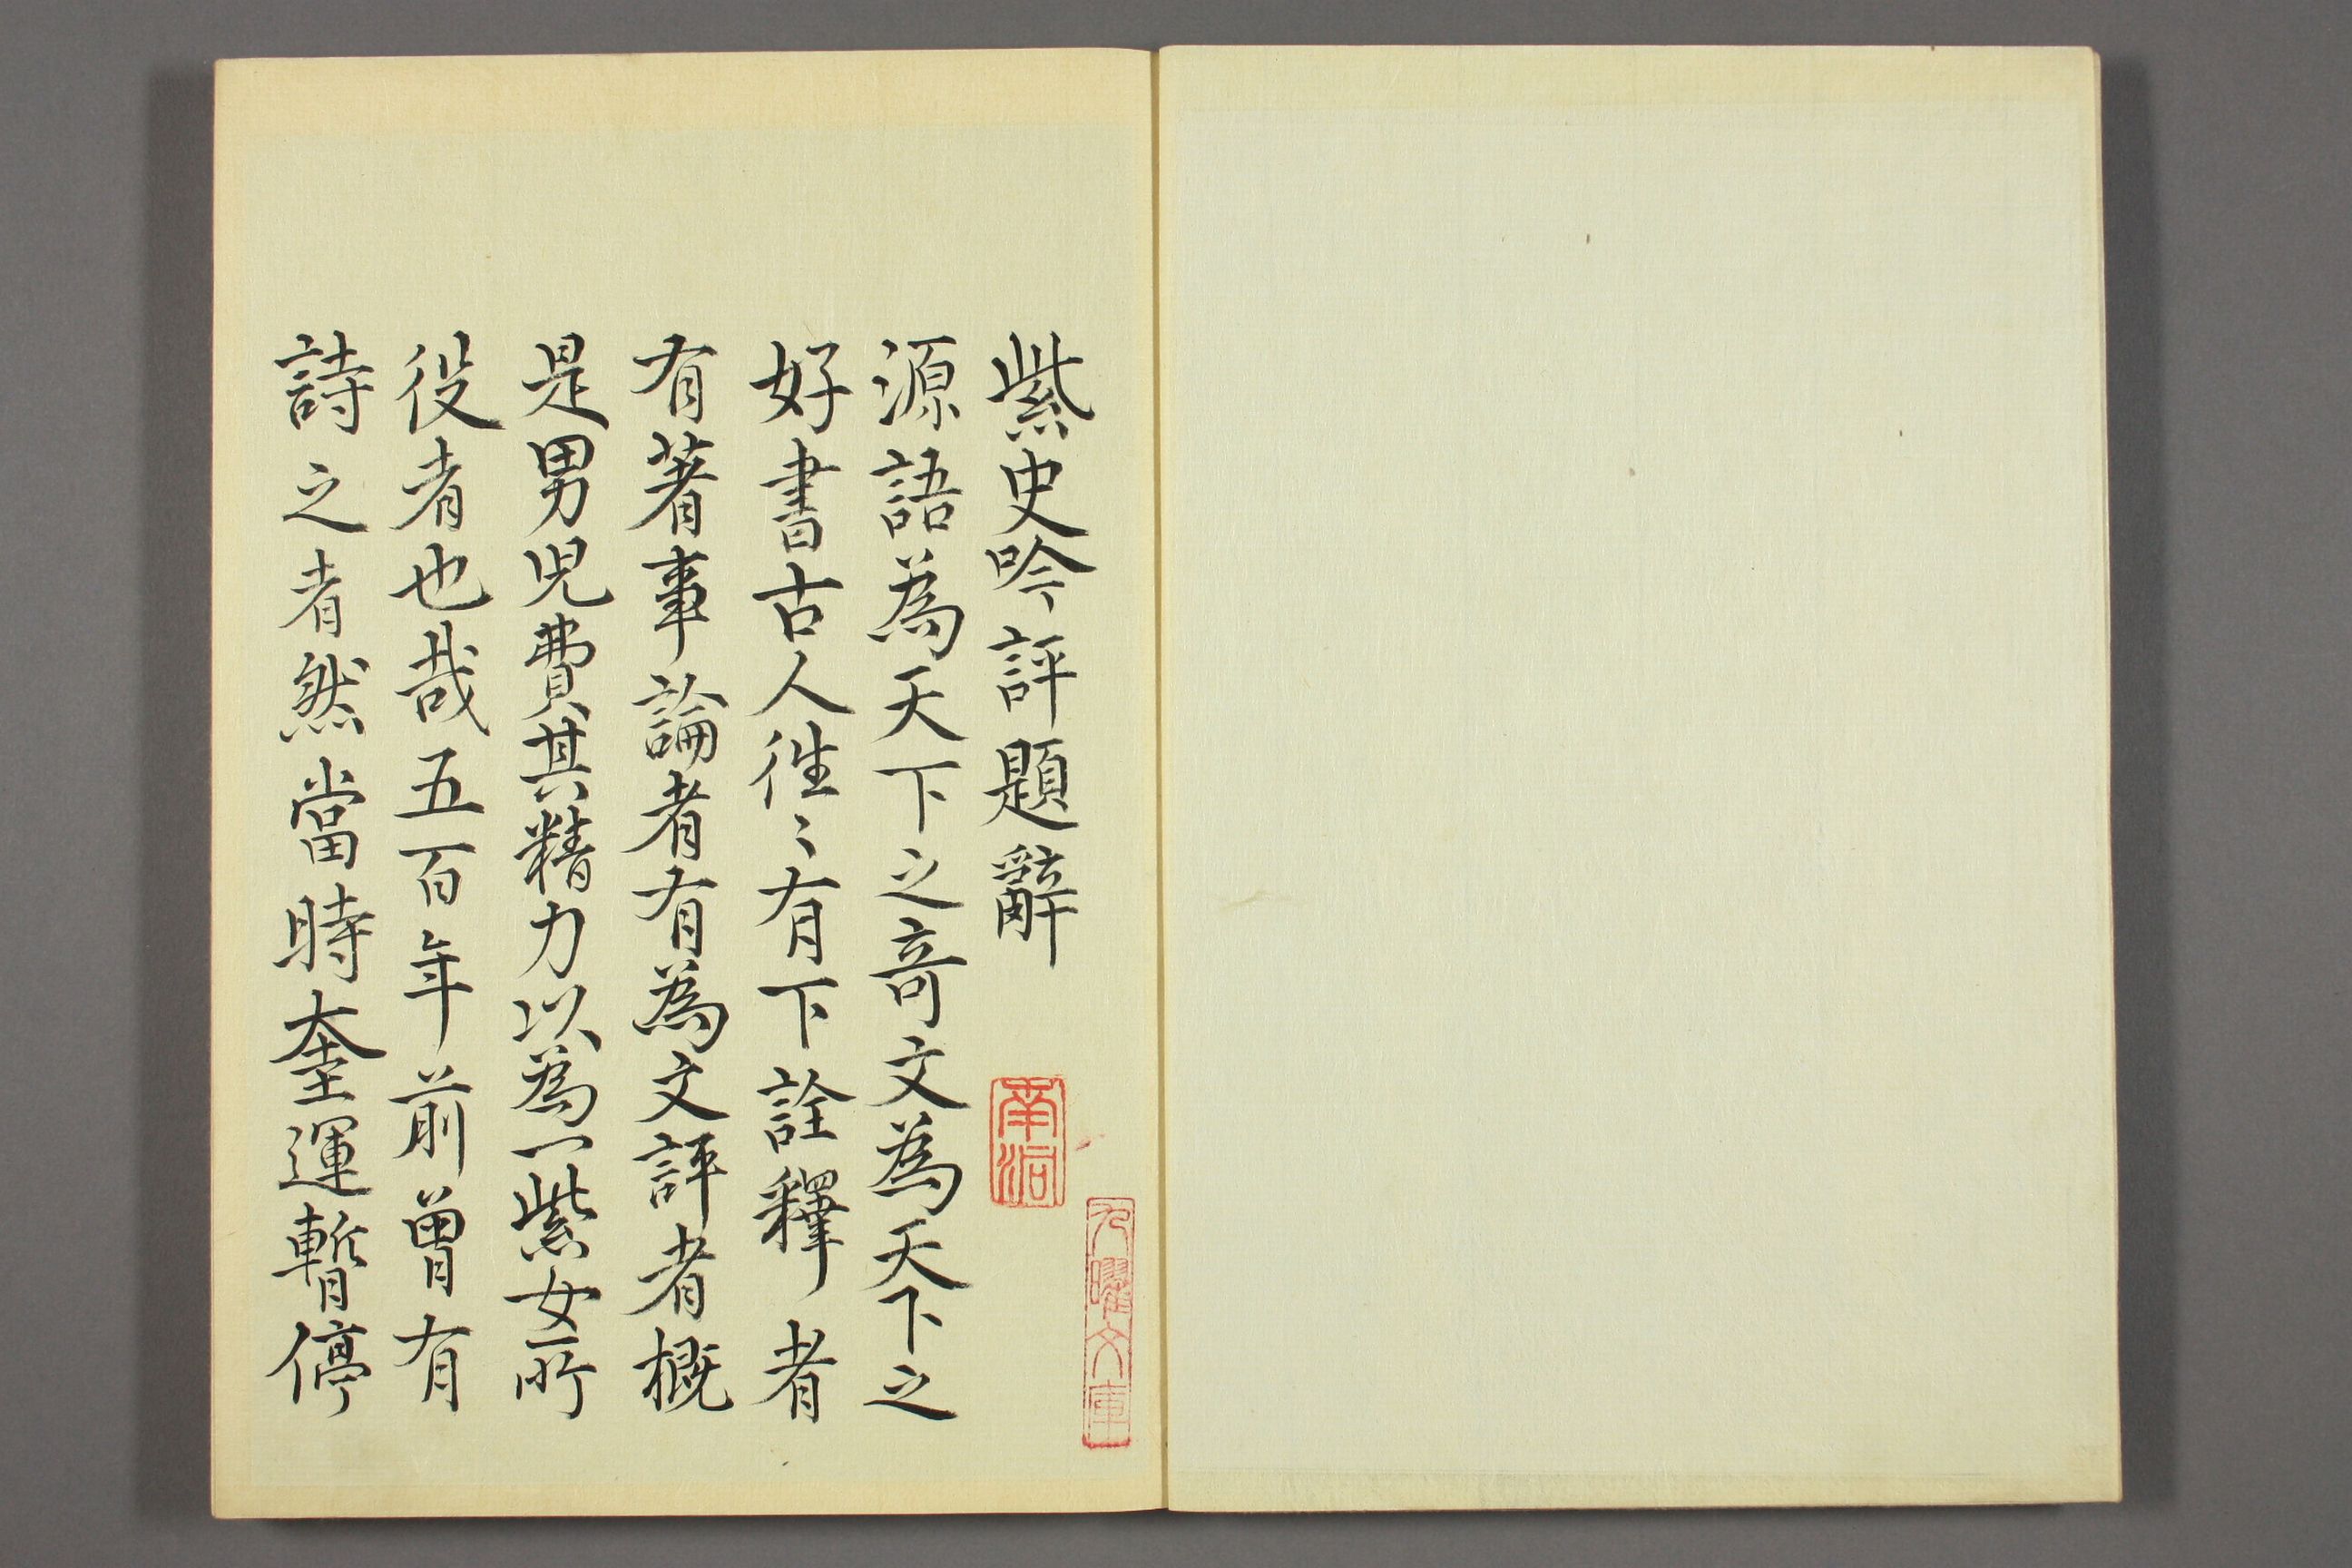 紫史吟評題辭
源語為天下之奇文為天下之
好書古人徃〻有下詮釋者
有著事論者有為文評者概
是男児費其精力以為一紫女所
役者也哉五百年前曾有
詩之者然當時奎運暫停
南洞
九曜文庫